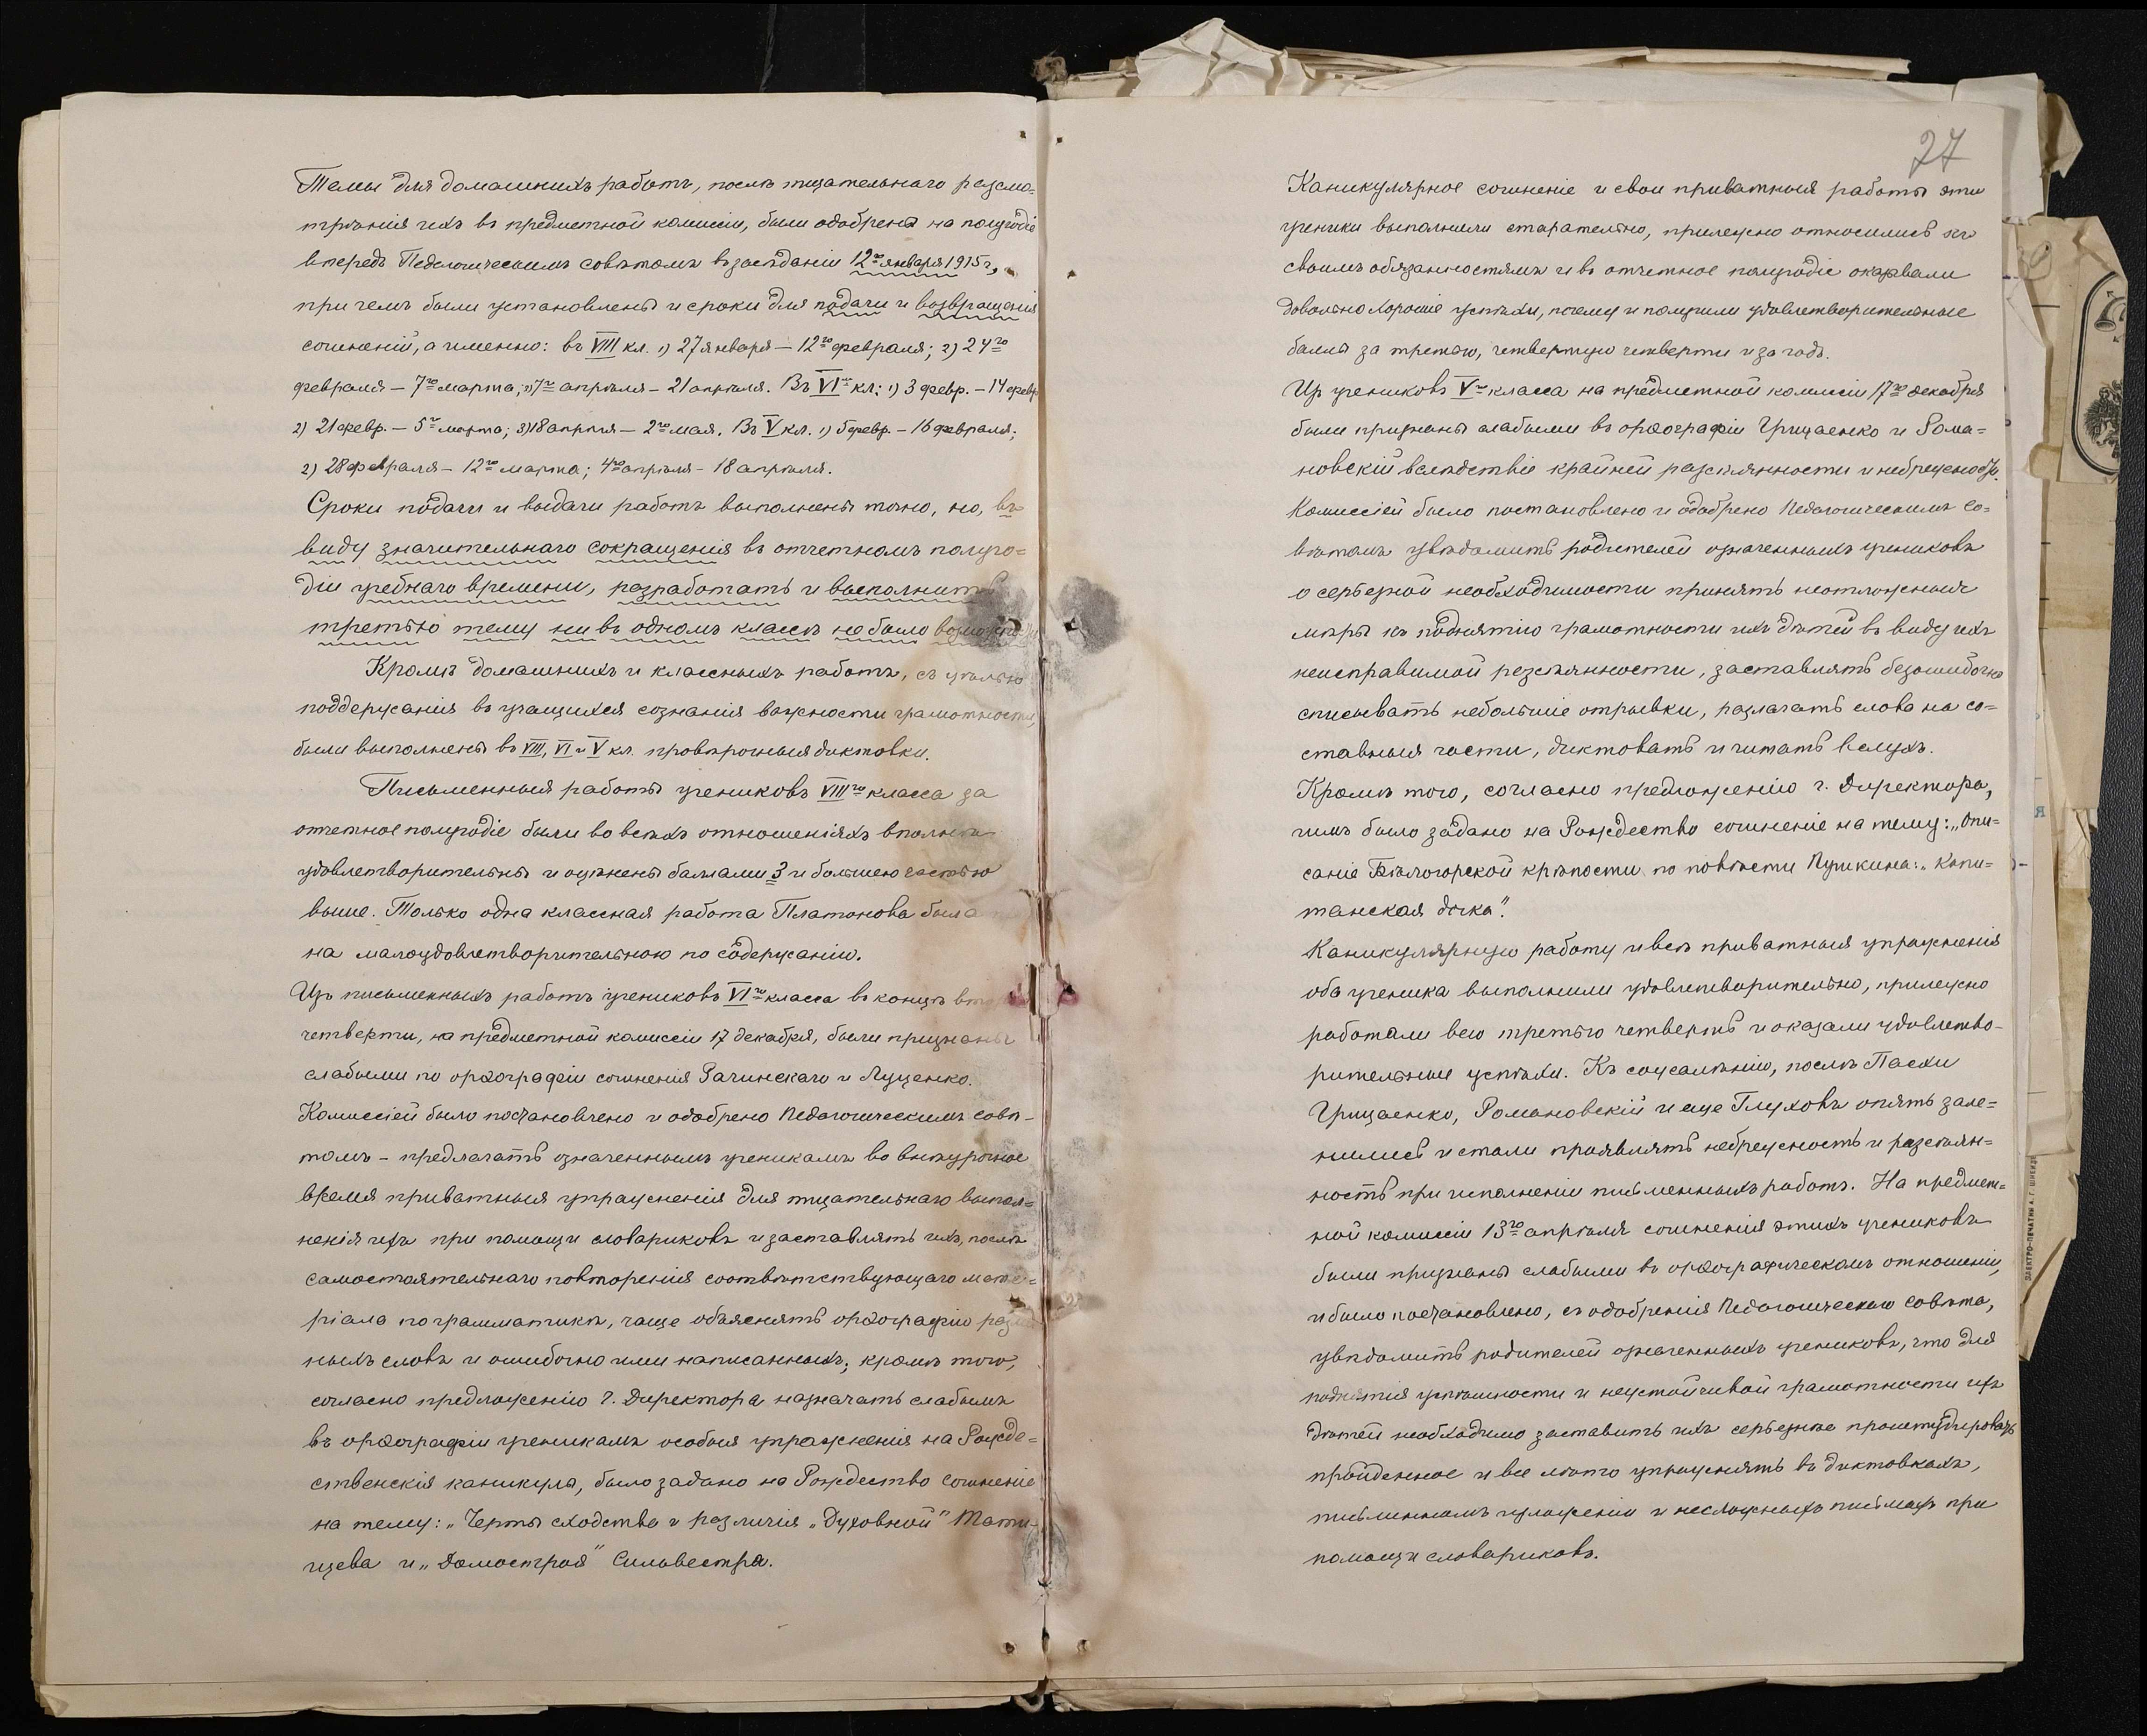 Темы для домашнихъ работъ, послѣ тщательнаго разсмо-
трѣнія ихъ въ предметной комиссіи, были одобрены на полугодіе
впередъ Педагогическимъ совѣтомъ въ засѣданіи 12го января 1915 г.,
при чемъ были установлены и сроки для подачи и возвращенія
сочиненій, а именно: въ VIII кл. 1) 27 января – 12го февраля; 2) 24го
февраля – 7го марта; 3) 7го апрѣля – 21 апрѣля. Въ VIго кл: 1) 3 февр. – 14 февр
2) 21 февр. – 5го марта; 3) 18 апрѣля – 2го мая. Въ V кл. 1) 5 февр. – 16 февраля;
2) 28 февраля – 12го марта; 4го апрѣля – 18 апрѣля.
Сроки подачи и выдачи работъ выполнены точно, но, въ
виду значительнаго сокращенія въ отчетномъ полуго-
діи учебнаго времени, разработать и выполнить
третью тему ни въ одномъ классѣ не было возможно
Кромѣ домашнихъ и классныхъ работъ, съ цѣлью
поддержанія въ учащихся сознанія важности грамотности,
были выполнены въ VIII, VI и V кл. провѣрочныя диктовки.
Письменныя работы учениковъ VIIIго класса за
отчетное полугодіе были во всѣхъ отношеніяхъ вполнѣ
удовлетворительны и оцѣнены баллами 3 и большею частью
выше. Только одна классная работа Платонова была
на малоудовлетворительною по содержанію.
Изъ письменныхъ работъ учениковъ VIго класса въ концѣ
четверти, на предметной комиссіи 17 декабря, были признаны
слабыми по орѳографіи сочиненія Рачинскаго и Луценко.
Комиссіей было постановлено и одобрено Педагогическимъ совѣ-
томъ – предлагать означеннымъ ученикамъ во внѣурочное
время приватныя упражненія для тщательнаго выпол-
ненія ихъ при помощи словариковъ и заставлять ихъ, послѣ
самостоятельнаго повторенія соотвѣтствующаго мате-
ріала по грамматикѣ, чаще объяснять орѳографію
ныхъ словъ и ошибочно ими написанныхъ; кромѣ того,
согласно предложенію г. Директора назначать слабымъ
въ орѳографіи ученикамъ особыя упражненія на Рожде-
ственскія каникулы, было задано на Рождество сочиненіе
на тему: „Черты сходства и различія „Духовной" Тати-
щева и „Домостроя" Сильвестра.
27
Каникулярное сочиненіе и свои приватныя работы эти
ученики выполнили старательно, прилежно относились къ
своимъ обязанностямъ и въ отчетное полугодіе оказали
довольно хорошіе успѣхи, почему и получили удовлетворительные
баллы за третью, четвертую четверти и за годъ.
Изъ учениковъ Vго класса на предметной комиссіи 17го декабря
были признаны слабыми въ орѳографіи Грищаенко и Рома-
новскій вслѣдствіе крайней разсѣянности и небрежности.
Комиссіей было постановлено и одобрено Педагогическимъ со-
вѣтомъ увѣдомить родителей означенныхъ учениковъ
о серьезной необходимости принять неотложныя
мѣры къ поднятію грамотности ихъ дѣтей въ виду ихъ
неисправимой разсѣянности, заставлять безошибочно
списывать небольшіе отрывки, разлагать слова на со-
ставныя части, диктовать и читать вслухъ.
Кромѣ того, согласно предложенію г. Директора,
имъ было задано на Рождество сочиненіе на тему: „Опи-
саніе Бѣлогорской крѣпости по повѣсти Пушкина: „Капи-
танская дочка".
Каникулярную работу и всѣ приватныя упражненія
оба ученика выполнили удовлетворительно, прилежно
работали всю третью четверть и оказали удовлетво-
рительные успѣхи. Къ сожалѣнію, послѣ Пасхи
Грищаенко, Романовскій и еще Глуховъ опять зале-
нились и стали проявлять небрежность и разсѣян-
ность при исполненіи письменныхъ работъ. На предмет-
ной комиссіи 13го апрѣля сочиненія этихъ учениковъ
были признаны слабыми въ орѳографическомъ отношеніи,
и было постановлено, съ одобренія Педагогическаго совѣта,
увѣдомить родителей означенныхъ учениковъ, что для
поднятія успѣшности и неустойчивой грамотности ихъ
дѣтей необходимо заставить ихъ серьезнѣе проштудировать
пройденное и все лѣто упражнять въ диктовкахъ,
письменномъ изложеніи и несложныхъ письмахъ при
помощи словариковъ.